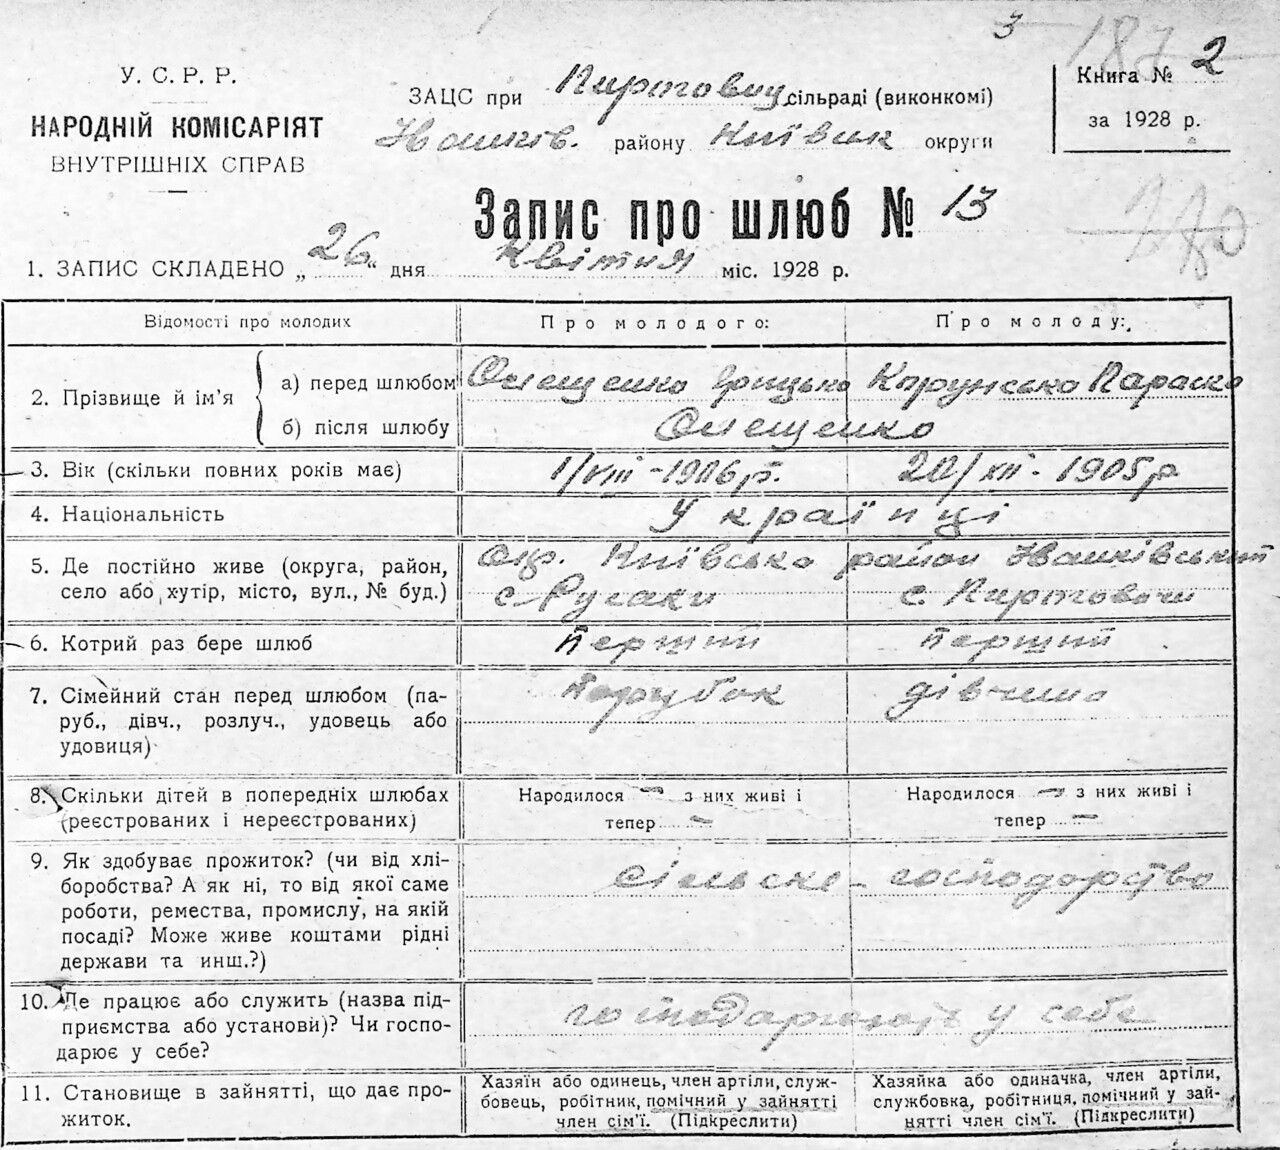 3 187 2
У. С. Р. Р.
НАРОДНІЙ КОМІСАРІЯТ
ВНУТРІШНІХ СПРАВ
ЗАЦС при Пиротовиц сільраді (виконкомі)
Іванків. району Київськ округи
Книга № 2
за 1928 р.
Запис про шлюб № 13
1. ЗАПИС СКЛАДЕНО „26" дня Квітня міс. 1928 р.
Відомості про молодих
Про молодого:
Про молоду:
2. Прізвище й ім'я
а) перед шлюбом
Онещенко Грицько
Карунсько Параска
б) після шлюбу
Онещенко
3. Вік (скільки повних років має)
1/VIII-1906р.
20/XII-1905р
4. Національність
Українці
5. Де постійно живе (округа, район,
село або хутір, місто, вул., № буд.)
Окр. Київська район Іванківський
с. Русаки
с. Пиротовичі
6. Котрий раз бере шлюб
Перший
Перший
7. Сімейний стан перед шлюбом (па-
руб., дівч., розлуч., удовець або
удовиця)
Парубок
дівчина
8. Скільки дітей в попередніх шлюбах
(реєстрованих і нереєстрованих)
Народилося — з них живі і
тепер —
Народилося — з них живі і
тепер —
9. Як здобуває прожиток? (чи від хлі-
боробства? А як ні, то від якої саме
роботи, ремества, промислу, на якій
посаді? Може живе коштами рідні
держави та инш.?)
сільське господарство
10. Де працює або служить (назва під-
приємства або установи)? Чи госпо-
дарює у себе?
господарюють у себе
11. Становище в зайнятті, що дає про-
житок.
Хазяїн або одинець, член артіли, служ-
бовець, робітник, помічний у зайнятті
член сім'ї. (Підкреслити)
Хазяйка або одиначка, член артіли,
службовка, робітниця, помічний у зай-
нятті член сім'ї. (Підкреслити)